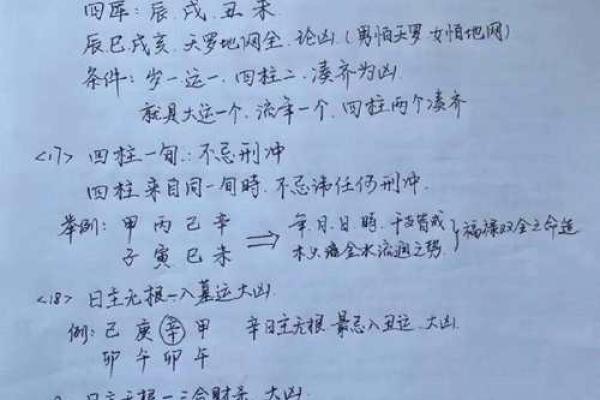 四库：辰.戌.丑.未
辰巳.戌亥.天罗地网全.论凶.(男怕天罗 女怕地网)
条件：岁一运一.四柱二.凑齐为凶.
就是大运一个.流年一个.四柱两个凑齐
<17> 四柱一旬.：不忌刑冲
四柱来自同一旬時.不忌讳任何刑冲.
举例：甲 丙 己 辛 ⇒ 年.月.日.時.干支皆成 } 福禄双全之命造
子 寅 巳 未 木火 金水流 之势
<18> 日主无根一入墓运大凶.
例：己 庚 辛 甲 辛日主无根 最忌入丑运.大凶.
卯 午 卯 午
日主无根一三合财杀.大凶.